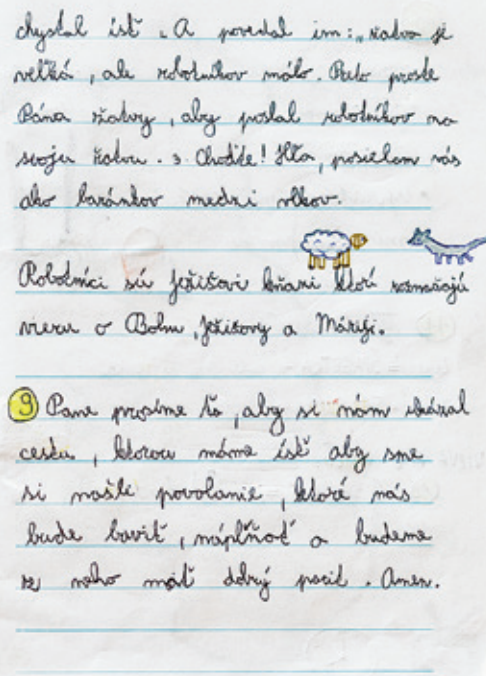 chystal ísť „A povedal im: „žatva je
veľká, ale robotníkov málo. Preto proste
Pána žatvy, aby poslal robotníkov na
svoju žatvu. 3. Choďte! Hľa, posielam vás
ako baránkov medzi vlkov.
Robotníci sú Ježišovi kňazi ktorí roznášajú
vieru o Bohu, Ježišovy a Máriji.
9 Pane prosíme ťa, aby si nám ukázal
cestu, ktorou máme ísť aby sme
si našli povolanie, ktoré nás
bude baviť, náplňať a budeme
z neho mať dobrý pocit. Amen.